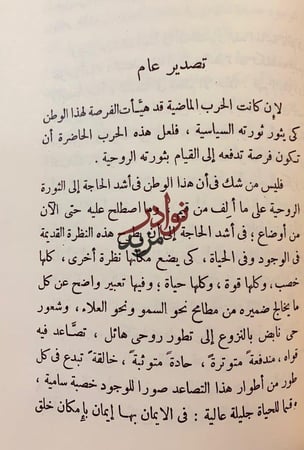 تصدير عام
لإن كانت الحرب الماضية قد هيأت الفرصة لهذا الوطن
كى يثور ثورته السياسية ، فلعل هذه الحرب الحاضرة أن
تكون فرصة تدفعه إلى القيام بثورته الروحية .
فليس من شك فى أن هذا الوطن فى أشد الحاجة إلى الثورة
الروحية على ما ألِف من اصطلح عليه حتى الآن
من أوضاع ؛ فى أشد الحاجة إلى هذه النظرة القديمة
فى الوجود وفى الحياة ، كى يضع مكانها نظرة أخرى ، كلها
خصب ، وكلها قوة ، وكلها حياة ؛ وفيها تعبير واضح عن كل
ما يخالج ضميره من مطامح نحو السمو ونحو العلاء ، وشعور
حى نابض بالنزوع إلى تطور روحى هائل ، تصّاعد فيه
قواه ، مندفعةً متوترةً ، حادةً متوثبةً ، خالقةً تبدع فى كل
طور من أطوار هذا التصاعد صورا للوجود خصبة سامية ،
وقيما للحياة جليلة عالية : فى الايمان بها إيمان بإمكان خلق
نوادر